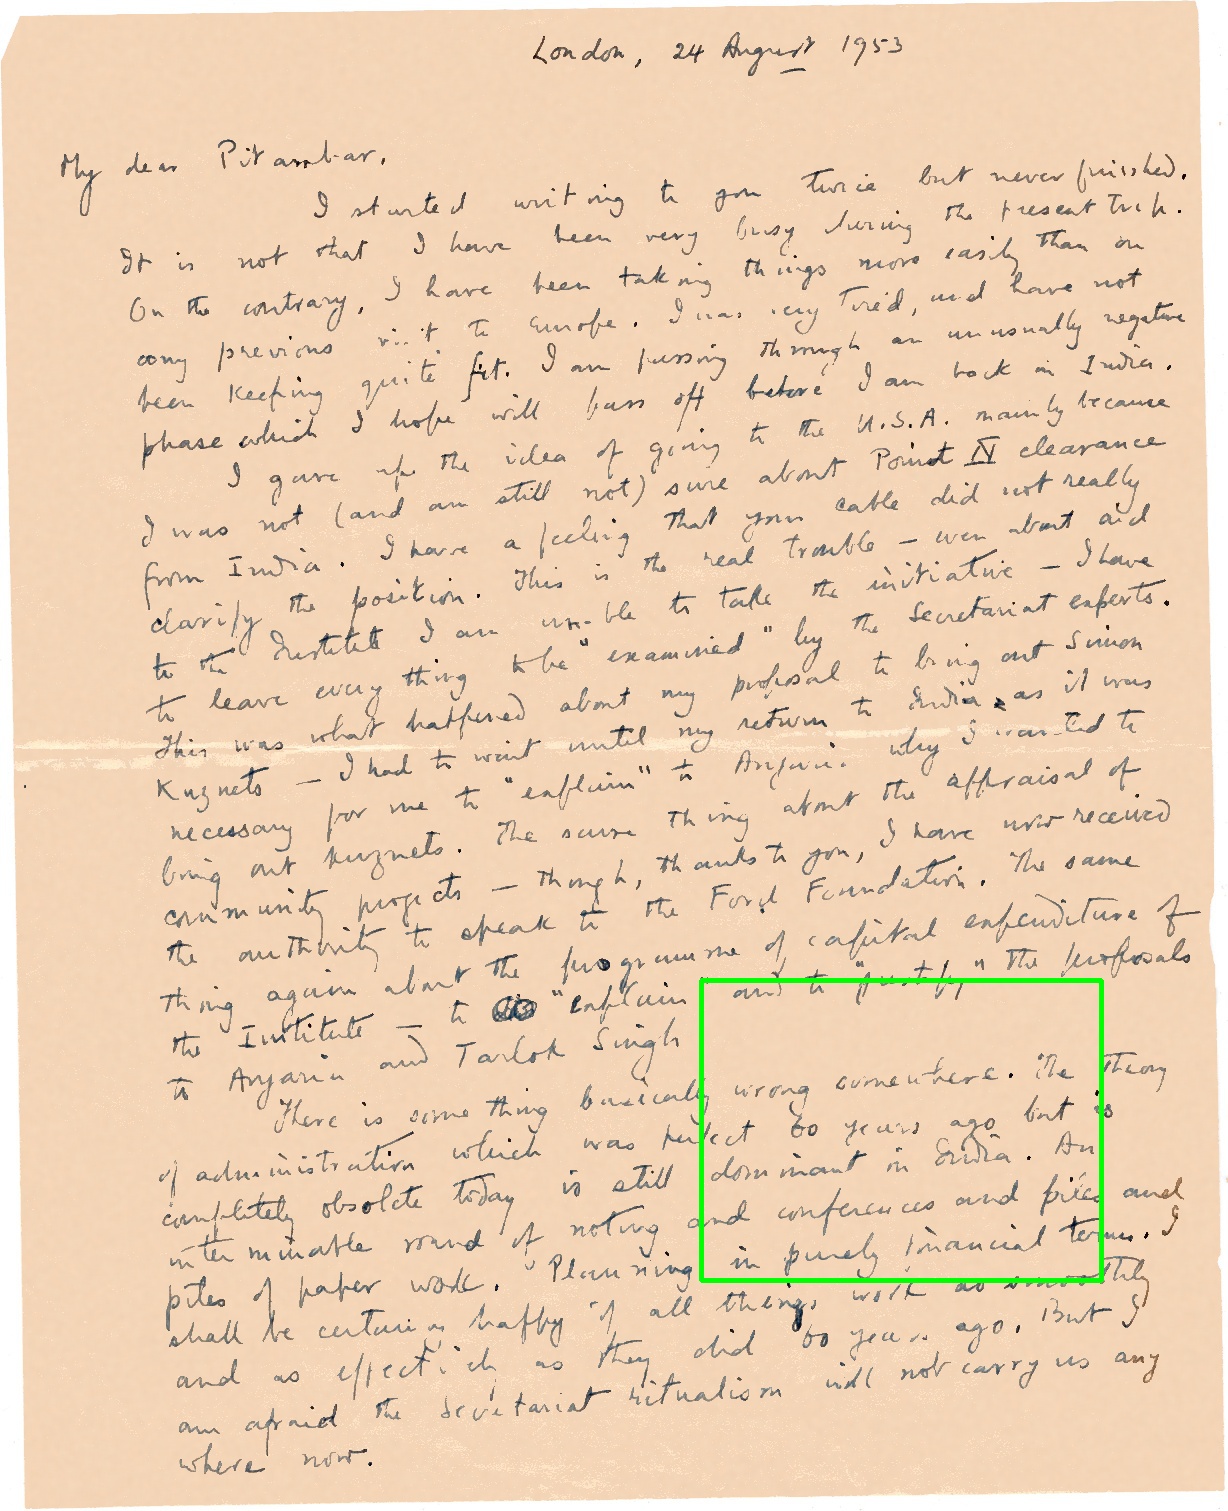 London, 24 August 1953
My dear Pitambar,
I started writing to you twice but never finished.
It is not that I have been very busy during the present trip.
On the contrary, I have been taking things more easily than on
any previous visit to Europe. I was very tired, and have not
been keeping quite fit. I am passing through an unusually negative
phase which I hope will pass off before I am back in India.
I gave up the idea of going to the U.S.A. mainly because
I was not (and am still not) sure about Point IV clearance
from India. I have a feeling that your cable did not really
clarify the position. This is the real trouble — even about aid
to the Institute I am unable to take the initiative — I have
to leave every thing to be "examined" by the Secretariat experts.
This was what happened about my proposal to bring out Simon
Kuznets — I had to wait until my return to India, as it was
necessary for me to "explain" to Anjaria why I wanted to
bring out Kuznets. The same thing about the appraisal of
community projects — though, thanks to you, I have now received
the authority to speak to the Ford Foundation. The same
thing again about the programme of capital expenditure of
the Institute — to "explain" and to "justify" the proposals
to Anjaria and Tarlok Singh
There is some thing basically wrong somewhere. The theory
of administration which was perfect 60 years ago but is
completely obsolete today is still dominant in India. An
interminable round of noting and conferences and files and
piles of paper work. Planning in purely financial terms. I
shall be certainly happy if all things work as smoothly
and as effectively as they did 60 years ago. But I
am afraid the Secretariat ritualism will not carry us any
where now.